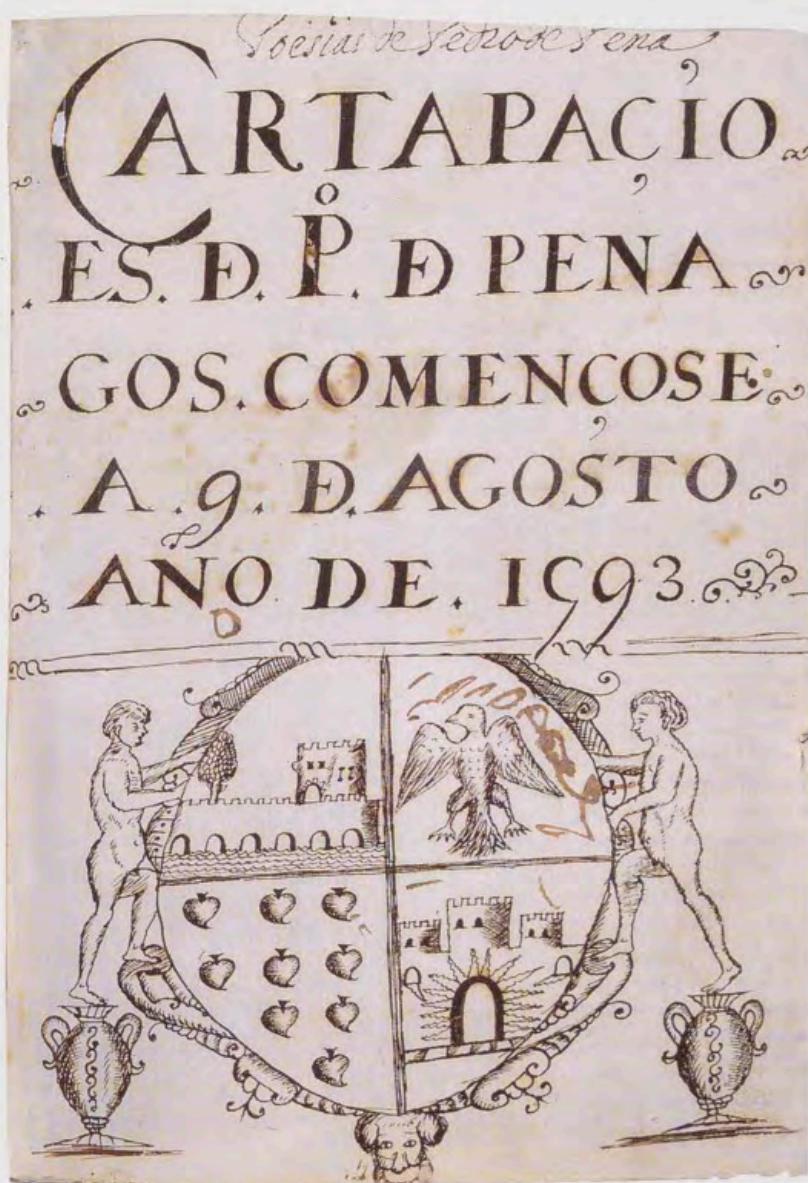 Poesias de Pedro de Pena
CARTAPAÇIO
ES. Đ. P.º Đ PENA
GOS. COMENÇOSE
A. 9. Đ. AGOSTO
AÑO DE. 1593